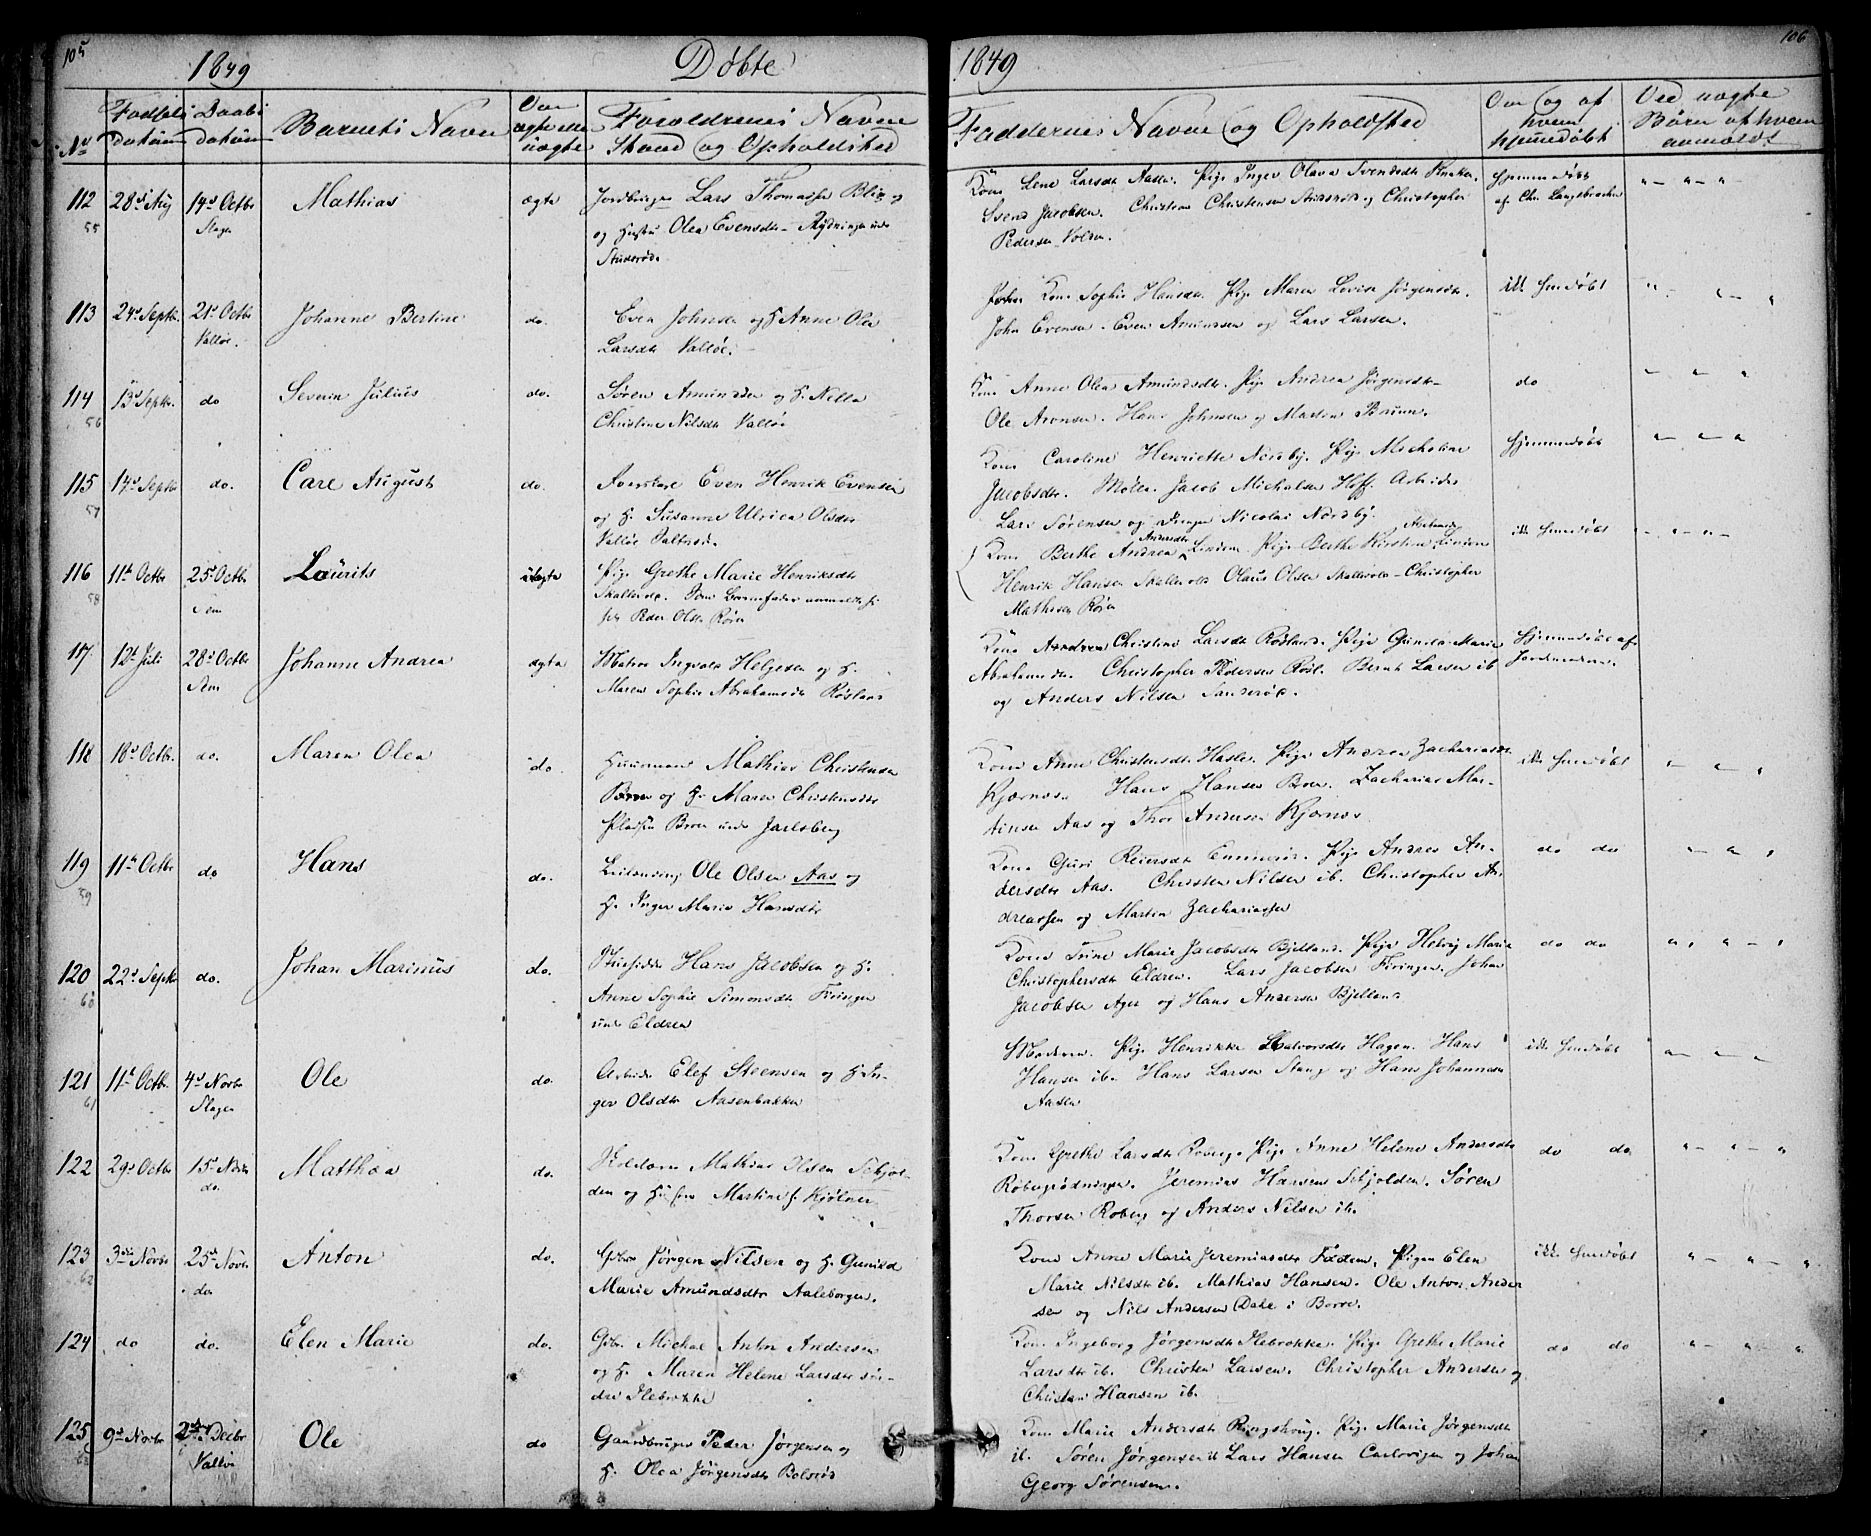 105
1849
Døbte
1849
106
No
Fødsels Datum
Daabs Datum
Barnets Navn
Om ægte eller uægte
Forældrenes Navne Stand og Opholdsted
Faddernes Navne og Opholdsted
Om og af hvem hjemmedøbt
Ved uægte Børn af hvem anmeldt
112
55
28de Aug
14de Octbr
Slagen
Mathias
ægte
Jordbruger Lars Thomassen
og Hustru Olea Evensdtr
Kone Lene Larsdt Aasen. Pige Inger Olava Svendsdt
Svend Jacobsen. Christian Christensen og Christopher
Pedersen Volden.
Hjemmedøbt
113
24de Septbr.
21de Octbr
Valløe.
Johanne Bertine
do.
Even Johnsen og H. Anne Olea
Larsdtr Valløe.
Kone Sophie Hansdtr. Pige Maren Lovise Jørgensdtr.
John Evensen. Even Amundsen og Lars Larsen.
ikke hmdøbt
114
56
13de Septbr.
do
Severin Julius
do.
Søren Amundsen og H. Nella
Christine Nilsdt Valløe
Kone Anne Olea Amundsdtr. Pige Andrea Jørgensdtr
Ole Aronsen. Hans Johnsen og Martin Bruun.
do
115
57
14de Septbr
do.
Carl August
do.
Even Henrik Evensen
og H. Susanne Ulrica Olsdtr
Valløe
Kone Caroline Henriette Nordby. Pige Micheline
Jacobsdtr. Møller Jacob Michalsen Hoff. Arbeider
Lars Sørensen og Nicolai Nordby.
Hjemmedøbt
116
58
11te Octbr
25de Octbr
Sem
Laurits
uægte
Pige Grethe Marie Henriksdtr
Skallevold. Som Barnefader anmeldtes
Peder Olsen Røren
Kone Berthe Andrea Andersdtr Linien. Pige Berthe Kirstine Linien
Henrik Hansen Skallevold Olaus Olsen Skallevold Christopher
Mathisen Røren
ikke hmdøbt
117
12te Juli
28de Octbr
Sem
Johanne Andrea
ægte
Matros Ingvald Helgesen og H.
Maren Sophie Abrahamsdtr Røsland
Kone Christine Larsdt Røsland. Pige Gunild Marie
Abrahamsdtr. Christopher Pedersen Røsl. Bernt Larsen ib
og Anders Nilsen
Hjemmedøbt af
Jordmoderen.
118
18de Octbr.
do.
Maren Olea
do.
Huusmand Mathias Christensen
Broen og H. Maren Christensdtr
Pladsen Broen under Jarlsberg
Kone Anne Christensdtr Hasle. Pige Andrea Zachariasdtr
Kjærnæs. Hans Hansen Broen. Zacharias Mar-
tinsen Aas og Thor Andersen Kjærnæs
ikke hmdøbt
119
59
11te Octbr
do
Hans
do.
Ole Olsen Aas og
H. Inger Marie Hansdtr
Kone Guri Reiersdtr. Pige Andrea An-
dersdtr Aas. Christen Nilsen ib. Christopher An-
dreassen og Martin Zachariassen
do do
120
60
22de Septbr
do.
Johan Marinus
do.
Hans Jacobsen og H.
Anne Sophie Simonsdtr Firingen
under Eldren
Kone Trine Marie Jacobsdtr Bjelland. Pige Helvig Marie
Christophersdtr Eldren. Lars Jacobsen Firingen. Johan
Jacobsen Ager og Hans Andersen Bjelland.
do do
121
61
11te Octbr.
4de Novbr
Slagen
Ole
do.
Arbeider Elef Steensen og H. In-
ger Olsdtr Aasenbakken
Moderen. Pige Henrikke Halvorsdtr Hagen. Hans
Hansen ib. Hans Larsen Stang og Hans Johannesen
Aasen
ikke hmdøbt
122
29de Octbr
15de Novbr
do.
Matthea
do.
Mathias Olsen Schjol-
den og Martine f. Kjølner
Kone Grethe Larsdtr Roberg. Pige Anne Helene Andersdtr
Robergrødningen. Jeremias Hansen Schjolden. Søren
Thorsen Roberg og Anders Nilsen ib.
do do
123
62
3die Novbr
25de Novbr
do.
Anton
do.
Gbr. Jørgen Nilsen og H. Gunild
Marie Amundsdtr Aaleborgen.
Kone Anne Marie Jeremiasdtr Foden. Pigen Elen
Marie Nilsdtr ib. Mathias Hansen. Ole Anton Ander
sen og Nils Andersen Dale i Borre.
ikke hmdøbt
124
do
do.
Elen Marie
do.
Gbr. Michal Anton Andersen
og H. Maren Helene Larsdtr søn-
dre Ilebrekke
Kone Ingeborg Jørgensdtr Ilebrekke. Pige Grethe Marie
Larsdtr ib. Christen Larsen. Christopher Andersen og
Christian Hansen ib.
do do
125
63
9de Novbr
2den Decbr
Valløe
Ole
do
Gaardbruger Peder Jørgensen og
H. Olea Jørgensdtr Bolsrød
Kone Marie Andersdt Ringshoug. Pige Marie Jørgensdt
ib. Søren Jørgensen ib Lars Hansen Carlsvigen og Johan
Georg Sørensen.